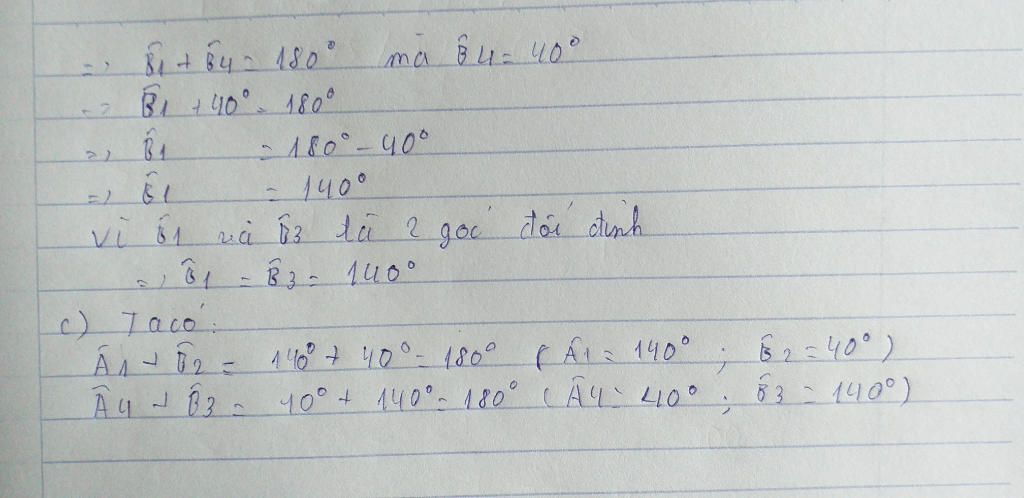 => B̂1 + B̂4 = 180° mà B̂4 = 40°
=> B̂1 + 40° = 180°
=> B̂1 = 180° - 40°
=> B̂1 = 140°
Vì B̂1 và B̂3 là 2 góc đối đỉnh
=> B̂1 = B̂3 = 140°
c) Ta có:
Â1 + B̂2 = 140° + 40° = 180° (Â1 = 140° ; B̂2 = 40°)
Â4 + B̂3 = 40° + 140° = 180° (Â4 = 40° ; B̂3 = 140°)